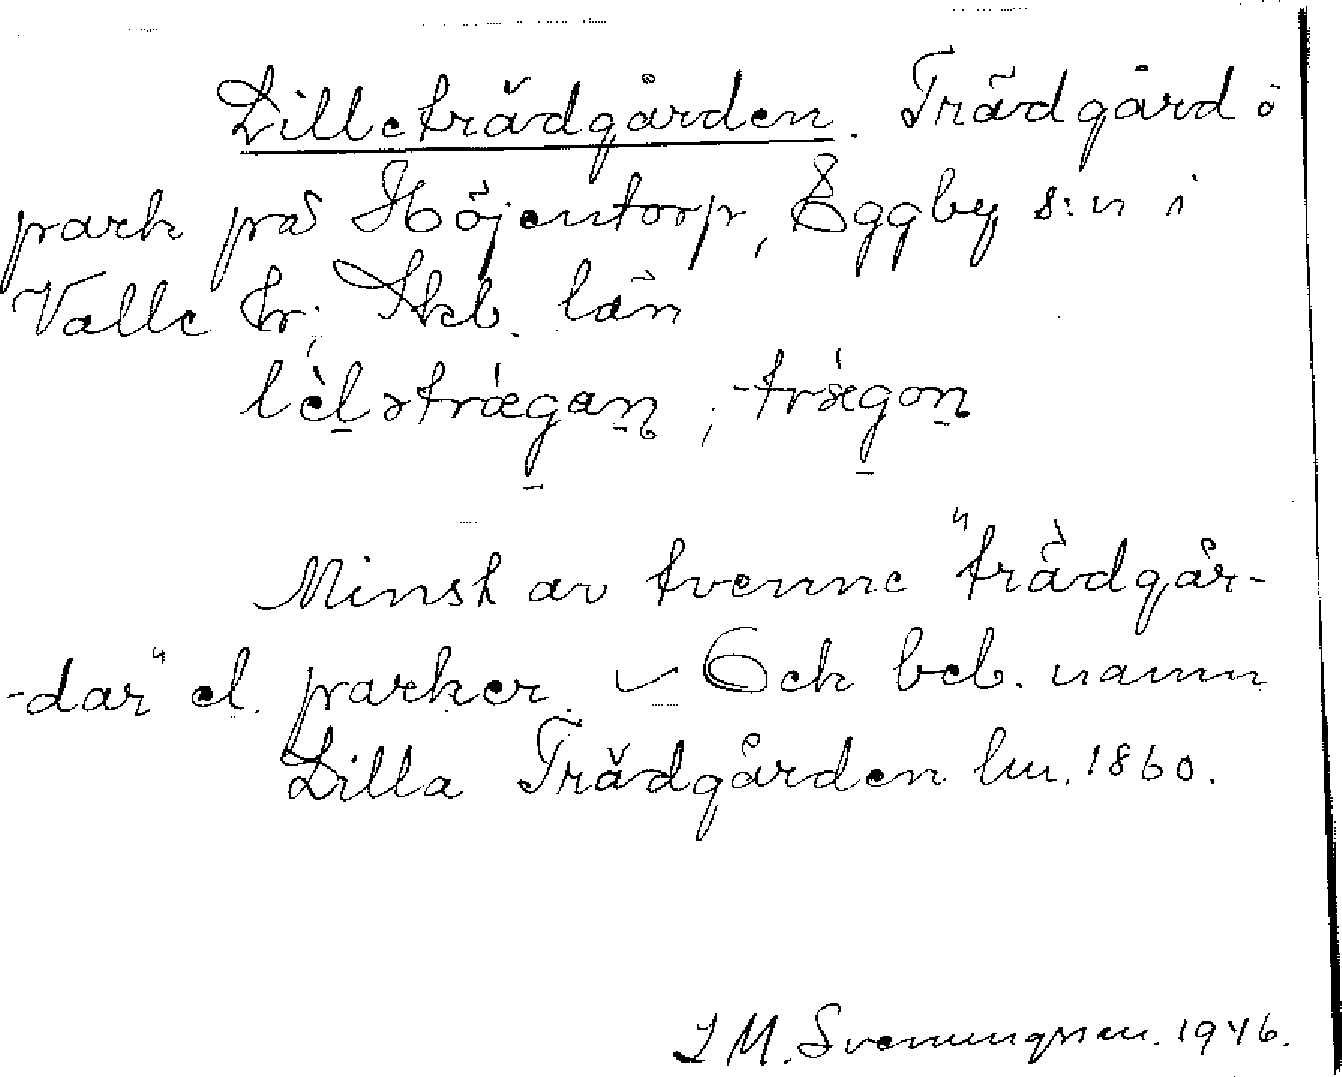 Lilleträdgården. Trädgård o
park på Höjentorp, Eggby s:n i
Valle hr; Skb. län
lèl̲ətrǽg̲an̲, -trǽg̲on̲
Minst av tvenne "trädgår-
-dar" el. parker. Ock beb. namn
Lilla Trädgården hu. 1860.
I M. Svenungsson. 1946.